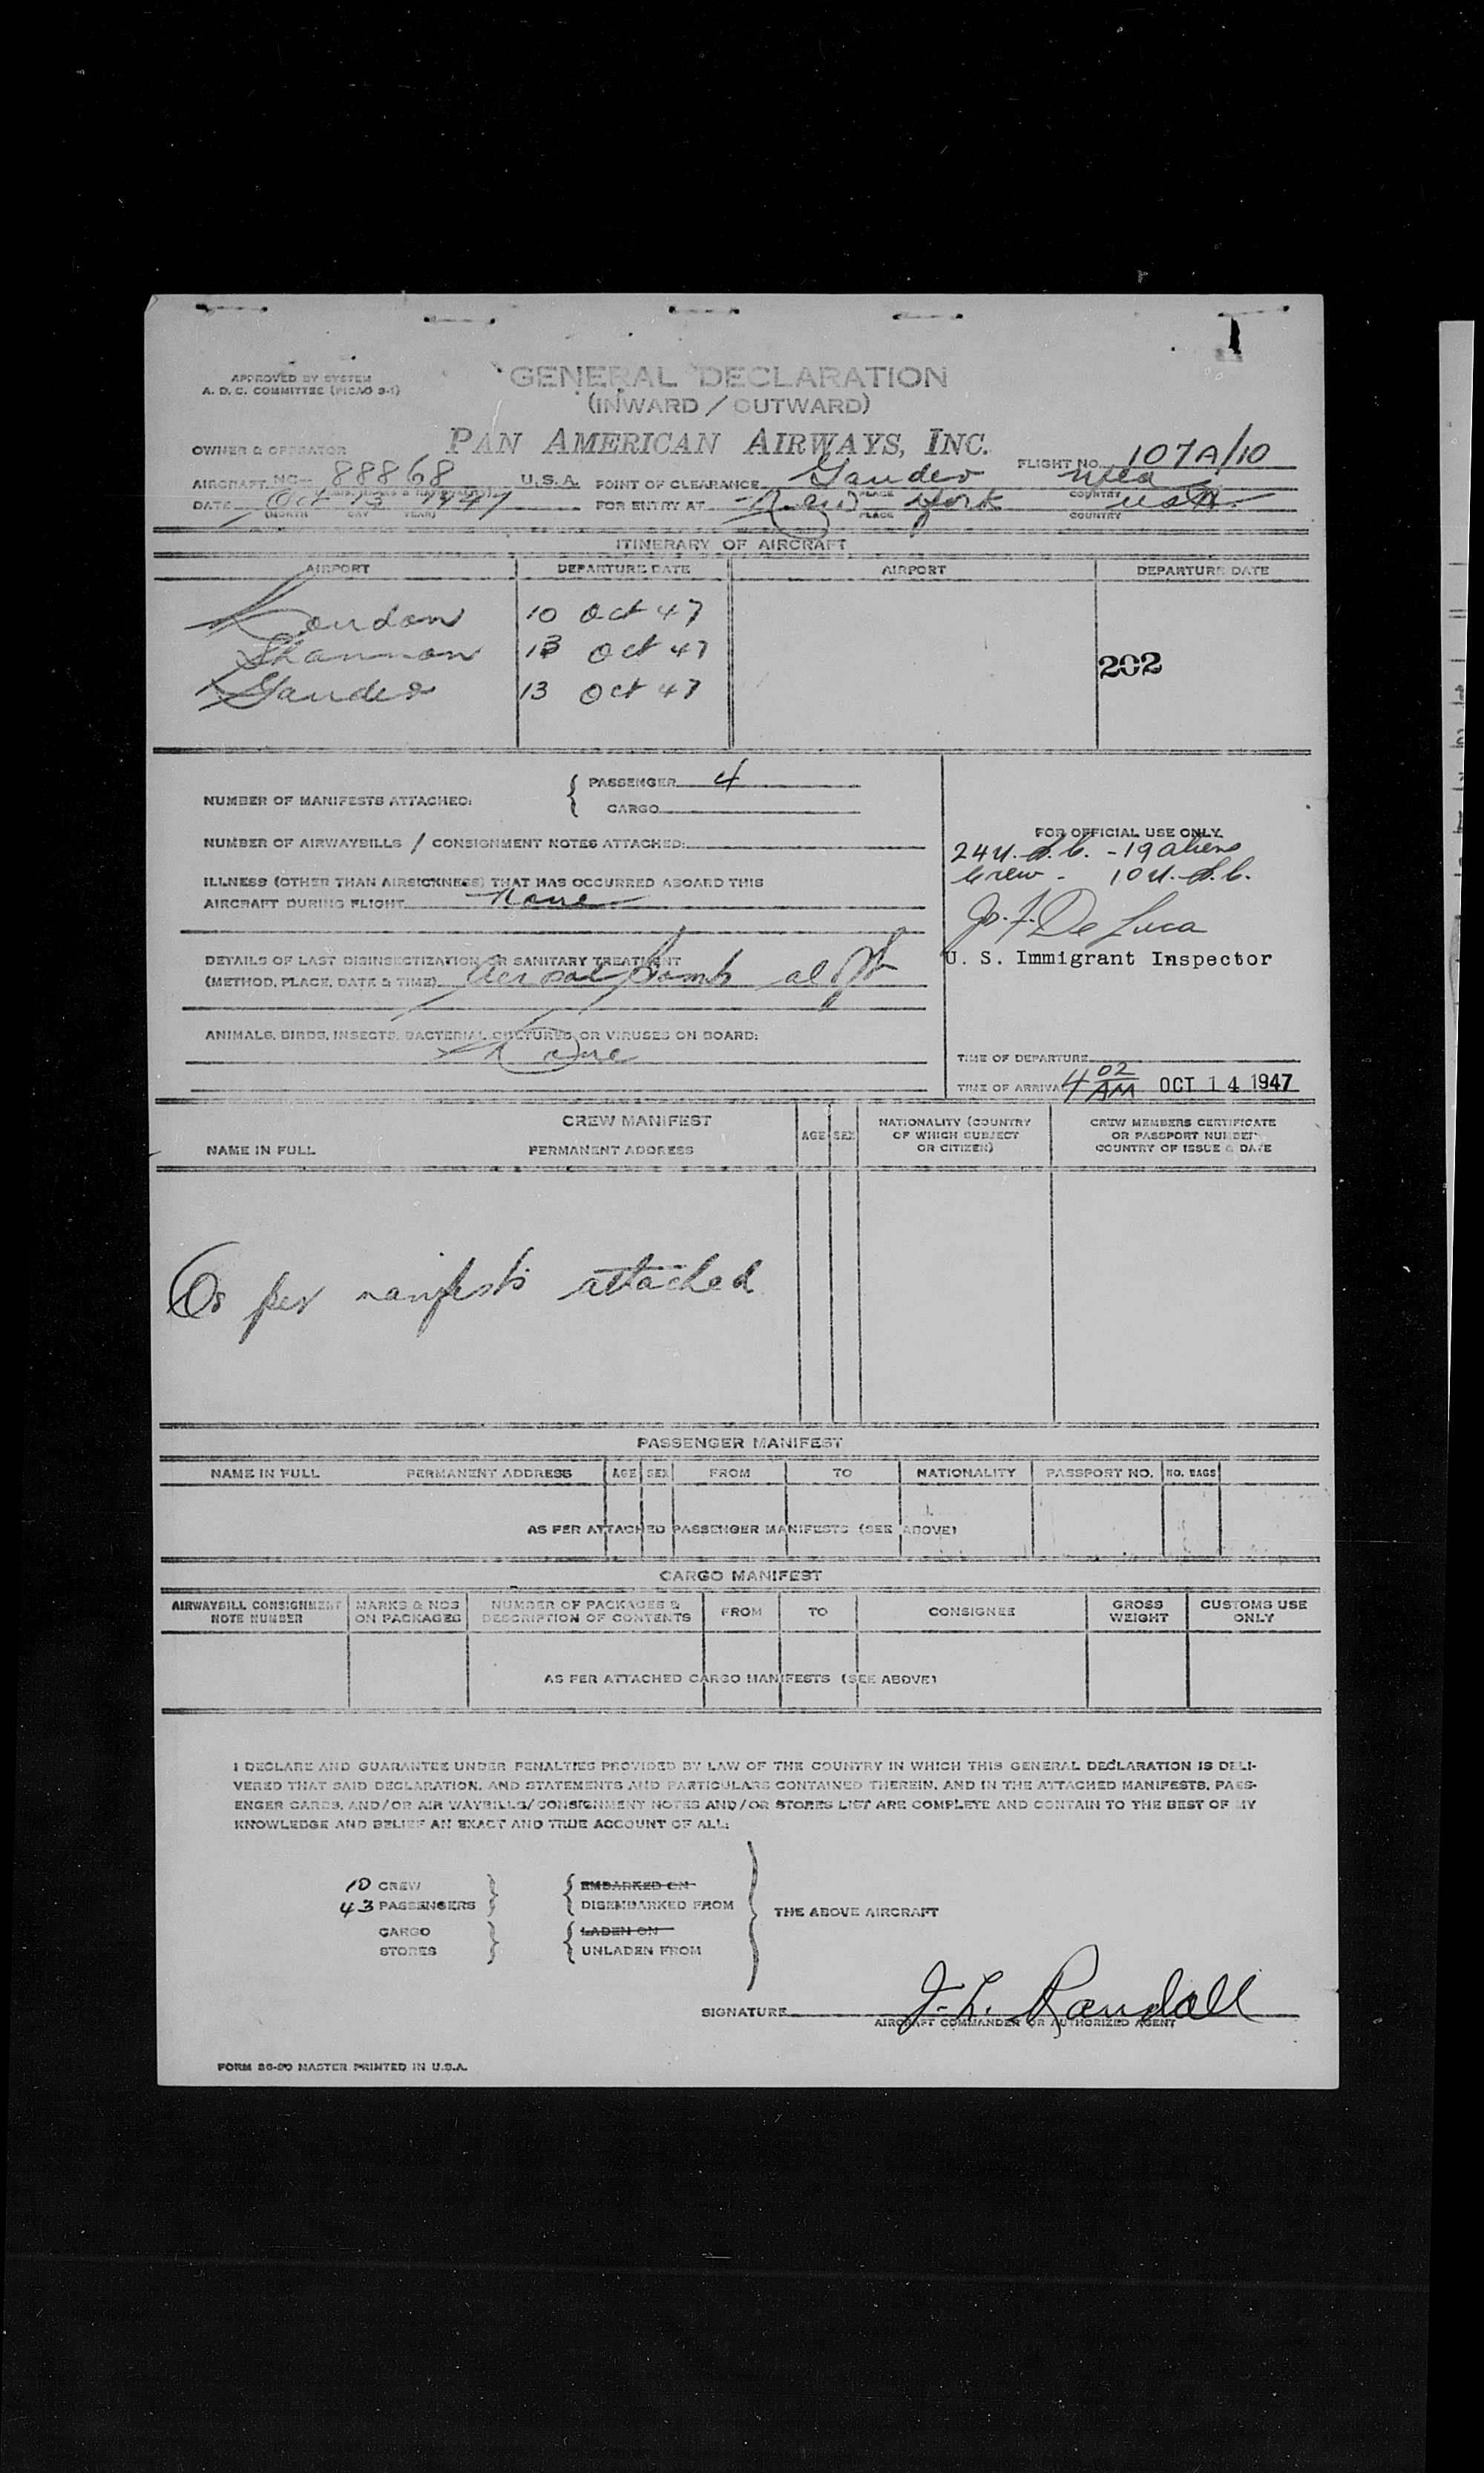 1
APPROVED BY SYSTEM
A. D. C. COMMITTEE (PICAO 9-1)
GENERAL DECLARATION
(INWARD / OUTWARD)
OWNER & OPERATOR PAN AMERICAN AIRWAYS, INC.
FLIGHT NO. 107A/10
AIRCRAFT NC- 88868 U.S.A. POINT OF CLEARANCE Gander Nfld
PLACE COUNTRY
DATE Oct 13 1947 FOR ENTRY AT New York USA
(MONTH DAY YEAR) PLACE COUNTRY
ITINERARY OF AIRCRAFT
AIRPORT DEPARTURE DATE AIRPORT DEPARTURE DATE
London 10 Oct 47
Shannon 13 Oct 47
202
Gander 13 Oct 47
NUMBER OF MANIFESTS ATTACHED: { PASSENGER 4
CARGO
FOR OFFICIAL USE ONLY.
NUMBER OF AIRWAYBILLS / CONSIGNMENT NOTES ATTACHED:
24 U.S.C. - 19 aliens
Crew - 10 U.S.C.
ILLNESS (OTHER THAN AIRSICKNESS) THAT HAS OCCURRED ABOARD THIS
AIRCRAFT DURING FLIGHT None
Jo. F. De Luca
U. S. Immigrant Inspector
DETAILS OF LAST DISINSECTIZATION OR SANITARY TREATMENT
(METHOD, PLACE, DATE & TIME) Aerosol Bomb aloft
ANIMALS, BIRDS, INSECTS, BACTERIAL CULTURES OR VIRUSES ON BOARD:
None
TIME OF DEPARTURE
TIME OF ARRIVAL 4 02 AM OCT 14 1947
CREW MANIFEST
NAME IN FULL PERMANENT ADDRESS AGE SEX NATIONALITY (COUNTRY OF WHICH SUBJECT OR CITIZEN) CREW MEMBERS CERTIFICATE OR PASSPORT NUMBER COUNTRY OF ISSUE & DATE
As per manifests attached
PASSENGER MANIFEST
NAME IN FULL PERMANENT ADDRESS AGE SEX FROM TO NATIONALITY PASSPORT NO. NO. BAGS
AS PER ATTACHED PASSENGER MANIFESTS (SEE ABOVE)
CARGO MANIFEST
AIRWAYBILL CONSIGNMENT NOTE NUMBER MARKS & NOS ON PACKAGES NUMBER OF PACKAGES & DESCRIPTION OF CONTENTS FROM TO CONSIGNEE GROSS WEIGHT CUSTOMS USE ONLY
AS PER ATTACHED CARGO MANIFESTS (SEE ABOVE)
I DECLARE AND GUARANTEE UNDER PENALTIES PROVIDED BY LAW OF THE COUNTRY IN WHICH THIS GENERAL DECLARATION IS DELI-
VERED THAT SAID DECLARATION, AND STATEMENTS AND PARTICULARS CONTAINED THEREIN, AND IN THE ATTACHED MANIFESTS, PASS-
ENGER CARDS, AND/OR AIR WAYBILLS/CONSIGNMENT NOTES AND/OR STORES LIST ARE COMPLETE AND CONTAIN TO THE BEST OF MY
KNOWLEDGE AND BELIEF AN EXACT AND TRUE ACCOUNT OF ALL:
10 CREW } { EMBARKED ON
43 PASSENGERS DISEMBARKED FROM
THE ABOVE AIRCRAFT
CARGO } { LADEN ON
STORES UNLADEN FROM
SIGNATURE J. L. Randall
AIRCRAFT COMMANDER OR AUTHORIZED AGENT
FORM 86-90 MASTER PRINTED IN U.S.A.